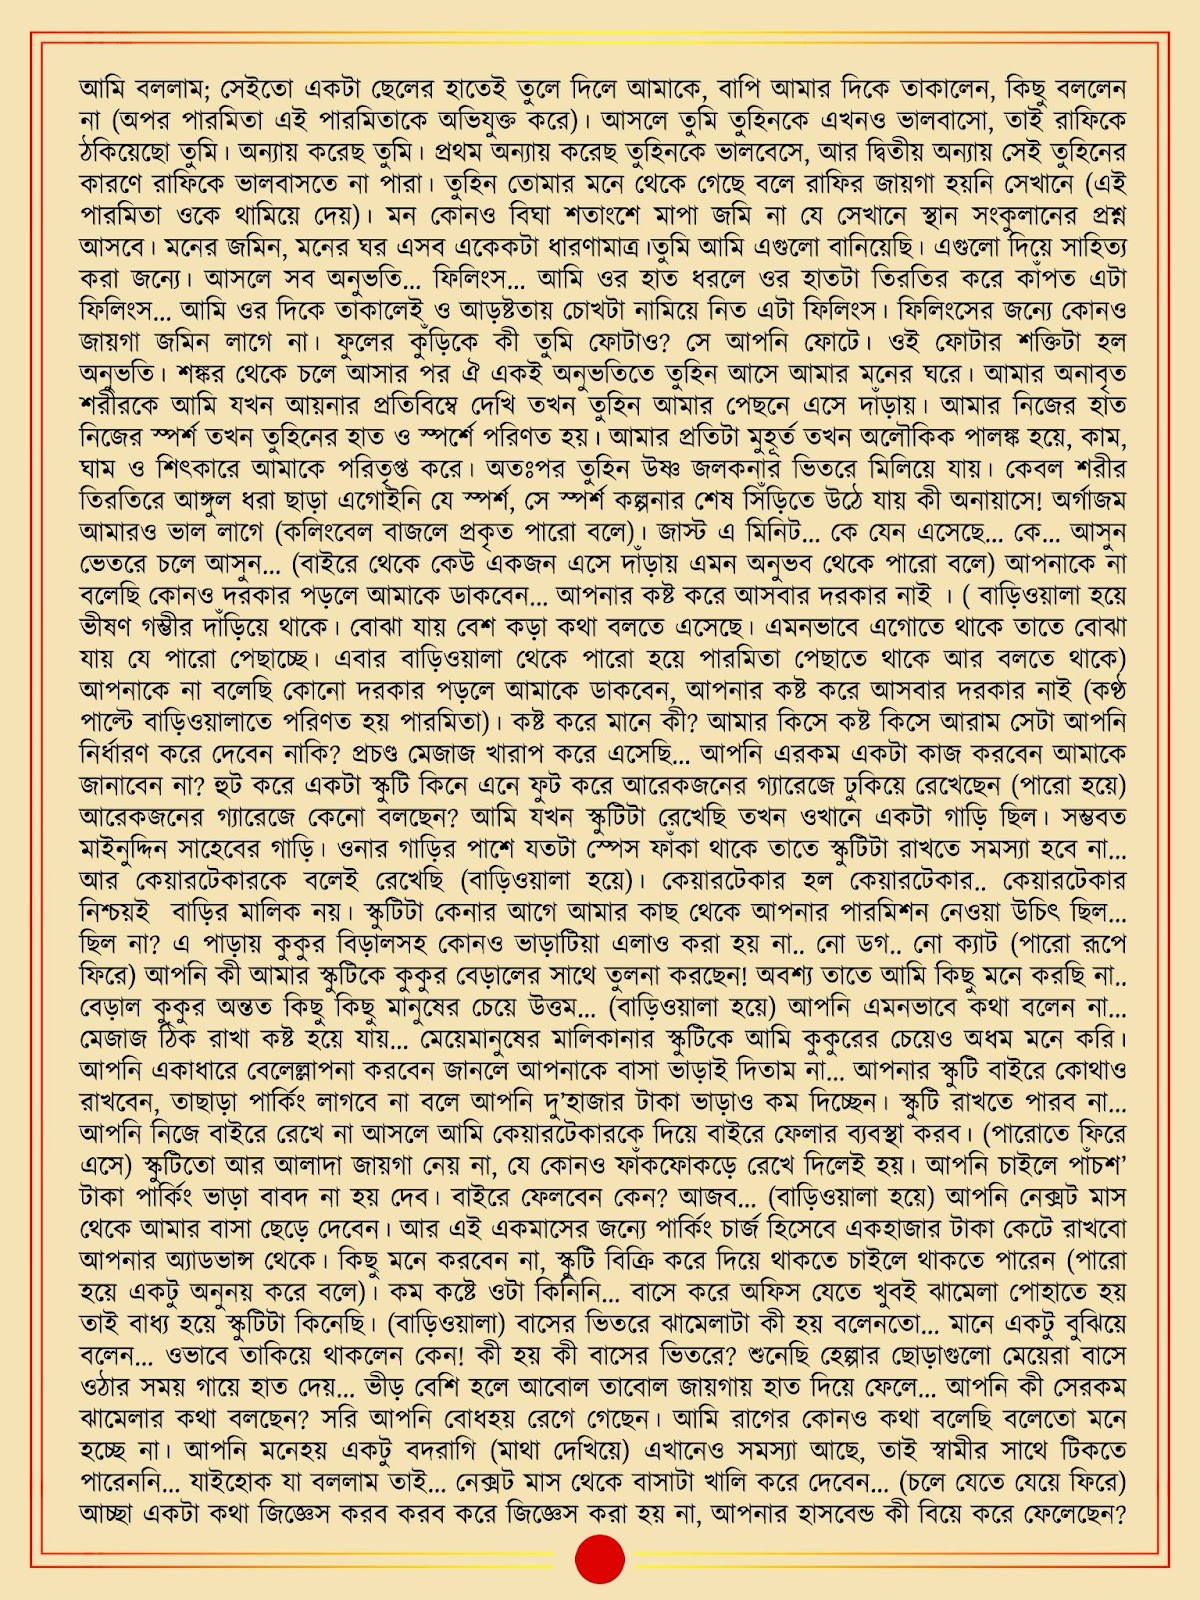 আমি বললাম; সেইতো একটা ছেলের হাতেই তুলে দিলে আমাকে, বাপি আমার দিকে তাকালেন, কিছু বললেন
না (অপর পারমিতা এই পারমিতাকে অভিযুক্ত করে)। আসলে তুমি তুহিনকে এখনও ভালবাসো, তাই রাফিকে
ঠকিয়েছো তুমি। অন্যায় করেছ তুমি। প্রথম অন্যায় করেছ তুহিনকে ভালবেসে, আর দ্বিতীয় অন্যায় সেই তুহিনের
কারণে রাফিকে ভালবাসতে না পারা। তুহিন তোমার মনে থেকে গেছে বলে রাফির জায়গা হয়নি সেখানে (এই
পারমিতা ওকে থামিয়ে দেয়)। মন কোনও বিঘা শতাংশে মাপা জমি না যে সেখানে স্থান সংকুলানের প্রশ্ন
আসবে। মনের জমিন, মনের ঘর এসব একেকটা ধারণামাত্র।তুমি আমি এগুলো বানিয়েছি। এগুলো দিয়ে সাহিত্য
করা জন্যে। আসলে সব অনুভতি... ফিলিংস... আমি ওর হাত ধরলে ওর হাতটা তিরতির করে কাঁপত এটা
ফিলিংস... আমি ওর দিকে তাকালেই ও আড়ষ্টতায় চোখটা নামিয়ে নিত এটা ফিলিংস। ফিলিংসের জন্যে কোনও
জায়গা জমিন লাগে না। ফুলের কুঁড়িকে কী তুমি ফোটাও? সে আপনি ফোটে। ওই ফোটার শক্তিটা হল
অনুভতি। শঙ্কর থেকে চলে আসার পর ঐ একই অনুভতিতে তুহিন আসে আমার মনের ঘরে। আমার অনাবৃত
শরীরকে আমি যখন আয়নার প্রতিবিম্বে দেখি তখন তুহিন আমার পেছনে এসে দাঁড়ায়। আমার নিজের হাত
নিজের স্পর্শ তখন তুহিনের হাত ও স্পর্শে পরিণত হয়। আমার প্রতিটা মুহূর্ত তখন অলৌকিক পালঙ্ক হয়ে, কাম,
ঘাম ও শিৎকারে আমাকে পরিতৃপ্ত করে। অতঃপর তুহিন উষ্ণ জলকনার ভিতরে মিলিয়ে যায়। কেবল শরীর
তিরতিরে আঙ্গুল ধরা ছাড়া এগোইনি যে স্পর্শ, সে স্পর্শ কল্পনার শেষ সিঁড়িতে উঠে যায় কী অনায়াসে! অর্গাজম
আমারও ভাল লাগে (কলিংবেল বাজলে প্রকৃত পারো বলে)। জাস্ট এ মিনিট... কে যেন এসেছে... কে... আসুন
ভেতরে চলে আসুন... (বাইরে থেকে কেউ একজন এসে দাঁড়ায় এমন অনুভব থেকে পারো বলে) আপনাকে না
বলেছি কোনও দরকার পড়লে আমাকে ডাকবেন... আপনার কষ্ট করে আসবার দরকার নাই । ( বাড়িওয়ালা হয়ে
ভীষণ গম্ভীর দাঁড়িয়ে থাকে। বোঝা যায় বেশ কড়া কথা বলতে এসেছে। এমনভাবে এগোতে থাকে তাতে বোঝা
যায় যে পারো পেছাচ্ছে। এবার বাড়িওয়ালা থেকে পারো হয়ে পারমিতা পেছাতে থাকে আর বলতে থাকে)
আপনাকে না বলেছি কোনো দরকার পড়লে আমাকে ডাকবেন, আপনার কষ্ট করে আসবার দরকার নাই (কণ্ঠ
পাল্টে বাড়িওয়ালাতে পরিণত হয় পারমিতা)। কষ্ট করে মানে কী? আমার কিসে কষ্ট কিসে আরাম সেটা আপনি
নির্ধারণ করে দেবেন নাকি? প্রচণ্ড মেজাজ খারাপ করে এসেছি... আপনি এরকম একটা কাজ করবেন আমাকে
জানাবেন না? হুট করে একটা স্কুটি কিনে এনে ফুট করে আরেকজনের গ্যারেজে ঢুকিয়ে রেখেছেন (পারো হয়ে)
আরেকজনের গ্যারেজে কেনো বলছেন? আমি যখন স্কুটিটা রেখেছি তখন ওখানে একটা গাড়ি ছিল। সম্ভবত
মাইনুদ্দিন সাহেবের গাড়ি। ওনার গাড়ির পাশে যতটা স্পেস ফাঁকা থাকে তাতে স্কুটিটা রাখতে সমস্যা হবে না...
আর কেয়ারটেকারকে বলেই রেখেছি (বাড়িওয়ালা হয়ে)। কেয়ারটেকার হল কেয়ারটেকার.. কেয়ারটেকার
নিশ্চয়ই বাড়ির মালিক নয়। স্কুটিটা কেনার আগে আমার কাছ থেকে আপনার পারমিশন নেওয়া উচিৎ ছিল...
ছিল না? এ পাড়ায় কুকুর বিড়ালসহ কোনও ভাড়াটিয়া এলাও করা হয় না.. নো ডগ.. নো ক্যাট (পারো রূপে
ফিরে) আপনি কী আমার স্কুটিকে কুকুর বেড়ালের সাথে তুলনা করছেন! অবশ্য তাতে আমি কিছু মনে করছি না..
বেড়াল কুকুর অন্তত কিছু কিছু মানুষের চেয়ে উত্তম... (বাড়িওয়ালা হয়ে) আপনি এমনভাবে কথা বলেন না...
মেজাজ ঠিক রাখা কষ্ট হয়ে যায়... মেয়েমানুষের মালিকানার স্কুটিকে আমি কুকুরের চেয়েও অধম মনে করি।
আপনি একাধারে বেলেল্লাপনা করবেন জানলে আপনাকে বাসা ভাড়াই দিতাম না... আপনার স্কুটি বাইরে কোথাও
রাখবেন, তাছাড়া পার্কিং লাগবে না বলে আপনি দু'হাজার টাকা ভাড়াও কম দিচ্ছেন। স্কুটি রাখতে পারব না...
আপনি নিজে বাইরে রেখে না আসলে আমি কেয়ারটেকারকে দিয়ে বাইরে ফেলার ব্যবস্থা করব। (পারোতে ফিরে
এসে) স্কুটিতো আর আলাদা জায়গা নেয় না, যে কোনও ফাঁকফোকড়ে রেখে দিলেই হয়। আপনি চাইলে পাঁচশ’
টাকা পার্কিং ভাড়া বাবদ না হয় দেব। বাইরে ফেলবেন কেন? আজব... (বাড়িওয়ালা হয়ে) আপনি নেক্সট মাস
থেকে আমার বাসা ছেড়ে দেবেন। আর এই একমাসের জন্যে পার্কিং চার্জ হিসেবে একহাজার টাকা কেটে রাখবো
আপনার অ্যাডভান্স থেকে। কিছু মনে করবেন না, স্কুটি বিক্রি করে দিয়ে থাকতে চাইলে থাকতে পারেন (পারো
হয়ে একটু অনুনয় করে বলে)। কম কষ্টে ওটা কিনিনি... বাসে করে অফিস যেতে খুবই ঝামেলা পোহাতে হয়
তাই বাধ্য হয়ে স্কুটিটা কিনেছি। (বাড়িওয়ালা) বাসের ভিতরে ঝামেলাটা কী হয় বলেনতো... মানে একটু বুঝিয়ে
বলেন... ওভাবে তাকিয়ে থাকলেন কেন! কী হয় কী বাসের ভিতরে? শুনেছি হেল্পার ছোড়াগুলো মেয়েরা বাসে
ওঠার সময় গায়ে হাত দেয়... ভীড় বেশি হলে আবোল তাবোল জায়গায় হাত দিয়ে ফেলে... আপনি কী সেরকম
ঝামেলার কথা বলছেন? সরি আপনি বোধহয় রেগে গেছেন। আমি রাগের কোনও কথা বলেছি বলেতো মনে
হচ্ছে না। আপনি মনেহয় একটু বদরাগি (মাথা দেখিয়ে) এখানেও সমস্যা আছে, তাই স্বামীর সাথে টিকতে
পারেননি... যাইহোক যা বললাম তাই... নেক্সট মাস থেকে বাসাটা খালি করে দেবেন... (চলে যেতে যেয়ে ফিরে)
আচ্ছা একটা কথা জিজ্ঞেস করব করব করে জিজ্ঞেস করা হয় না, আপনার হাসবেন্ড কী বিয়ে করে ফেলেছেন?